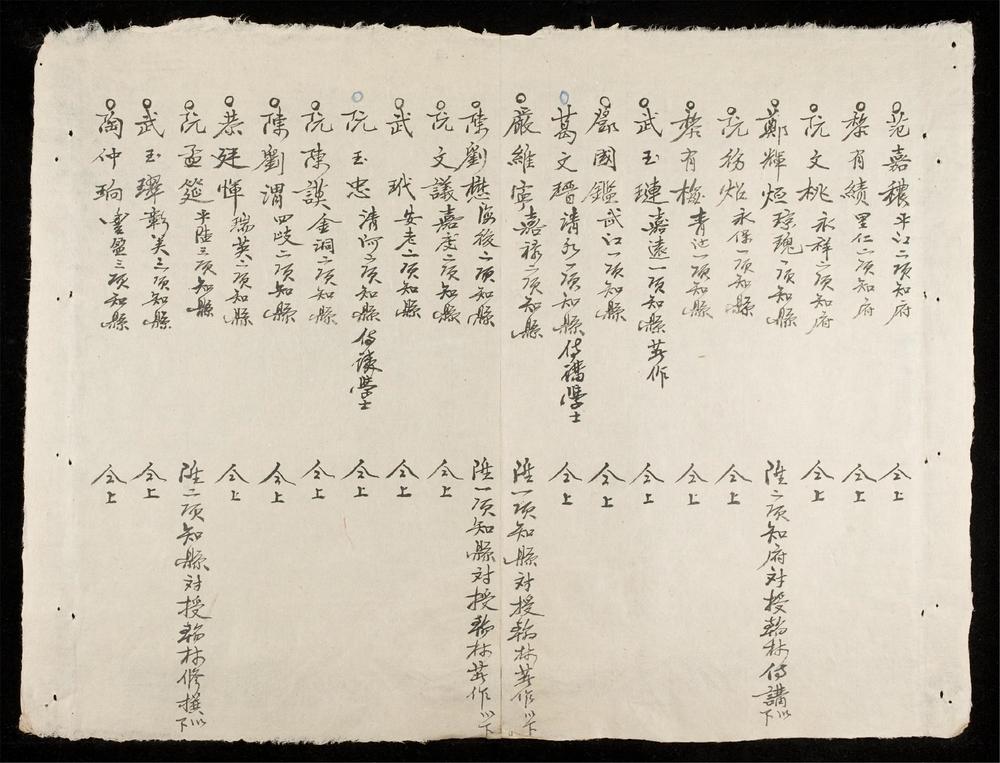 范嘉穠平江二項知府 仝上
黎肖績里仁二項知府 仝上
阮文桃永祥二項知府 仝上
鄭輝烜瓊瑰一項知縣 陞二項知府対授翰林侍講以下
阮務炤永保一項知縣 仝上
黎有梅青沔一項知縣 仝上
武玉璉嘉遠一項知縣著作 仝上
鄧國鑑武江一項知縣 仝上
葛文瑨請永一項知縣侍講學士 仝上
嚴維寧嘉祿二項知縣 陞一項知縣対授翰林著作以下
陳劉懋海後二項知縣 陞一項知縣対授翰林著作以下
阮文議嘉定二項知縣 仝上
武玳安老二項知縣 仝上
阮玉忠清河二項知縣侍讀學士 仝上
阮陳謨金洞二項知縣 仝上
陳劉渭四岐二項知縣 仝上
恭廷惲瑞英二項知縣 仝上
阮孟筵平陸三項知縣 陞二項知縣対授翰林修撰以下
武玉璿彰美三項知縣 仝上
陶仲珦豊盈三項知縣 仝上